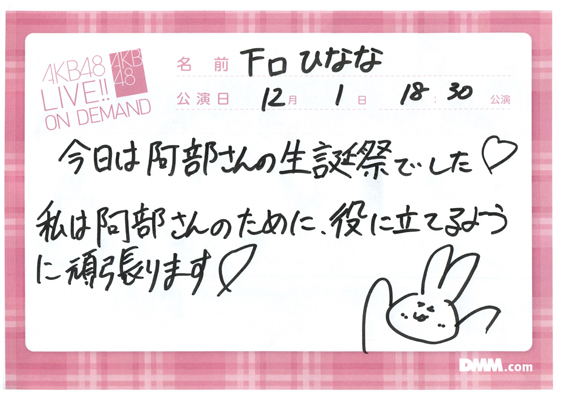 AKB48
LIVE!!
ON DEMAND
AKB
48
名前 下口ひなな
公演日 12月 1日 18:30 公演
今日は阿部さんの生誕祭でした♡
私は阿部さんのために、役に立てるよう
に頑張ります♡
DMM.com